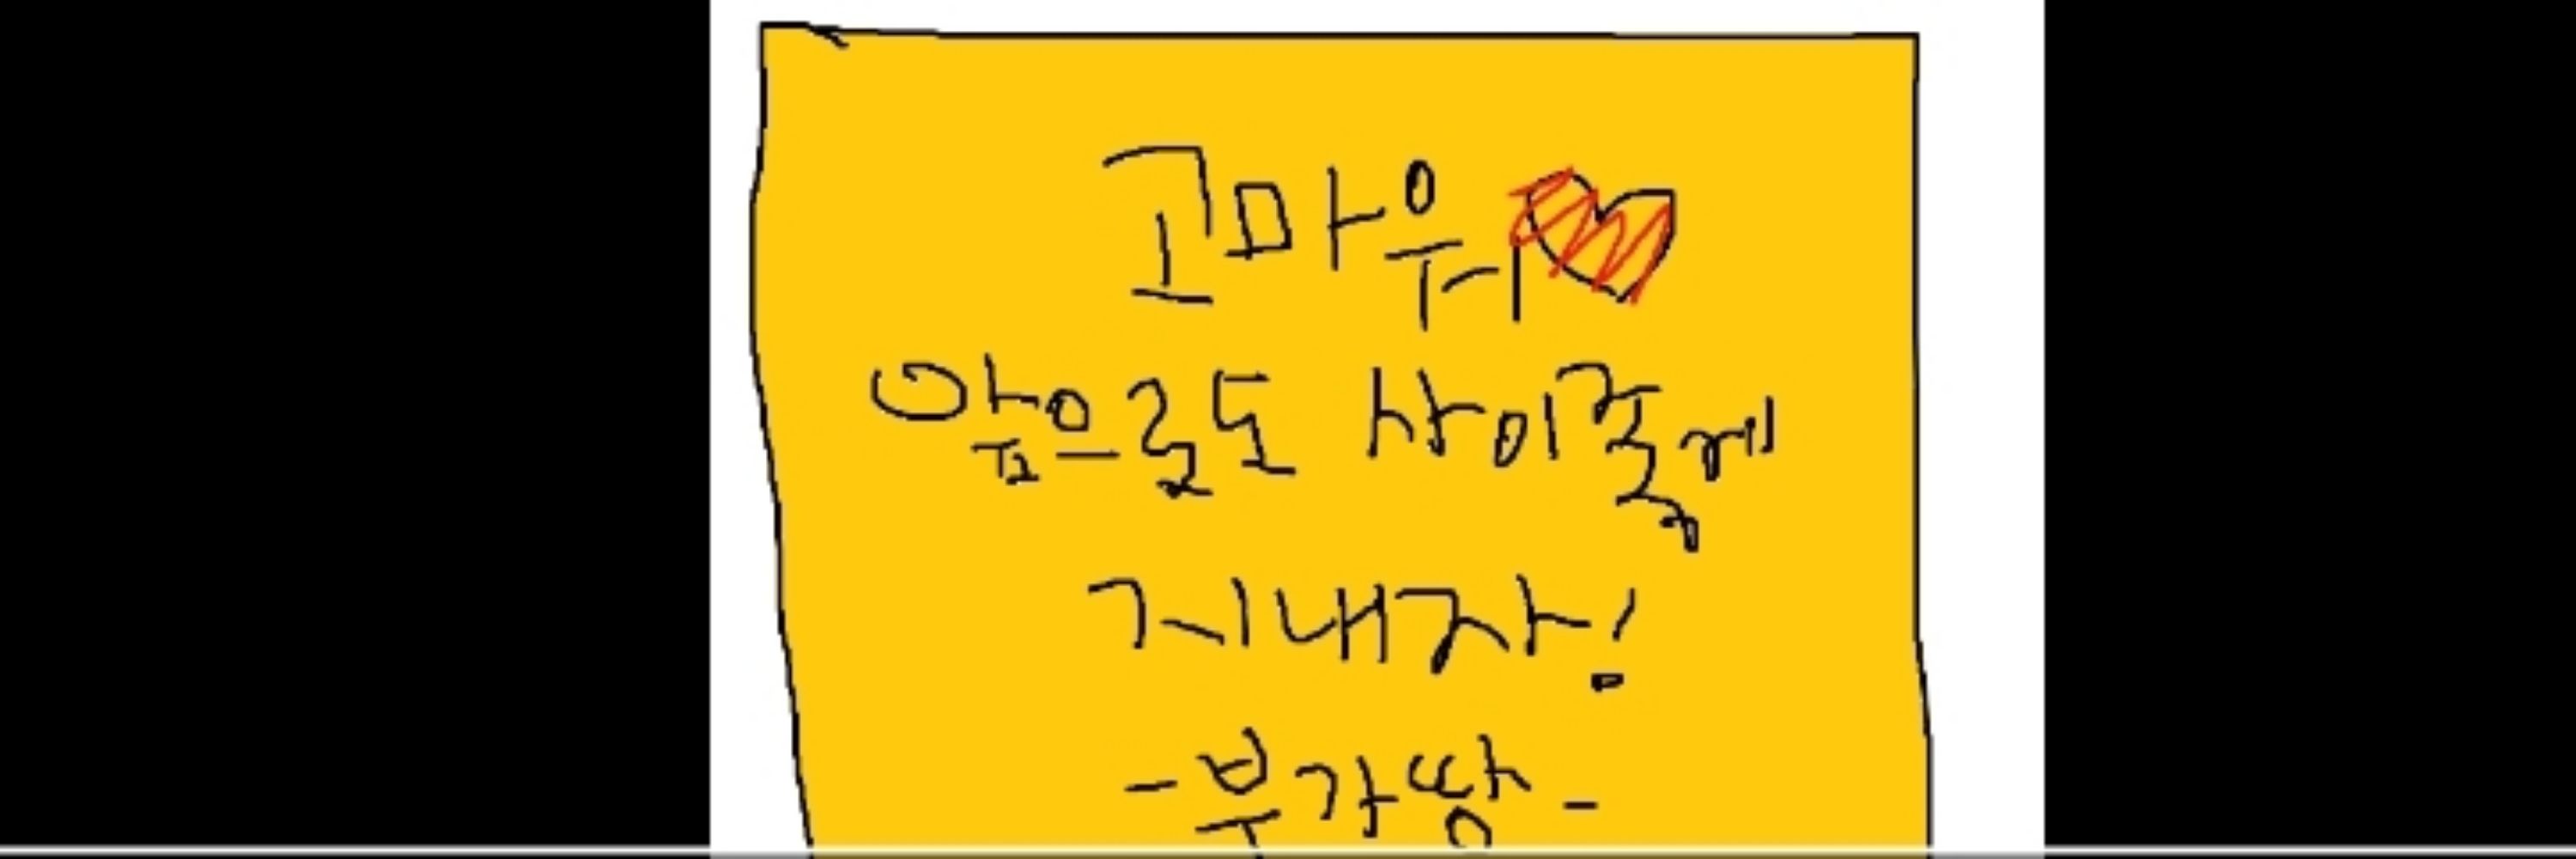 고마워
앞으로도 사이좋게
지내자!
-부강땅-